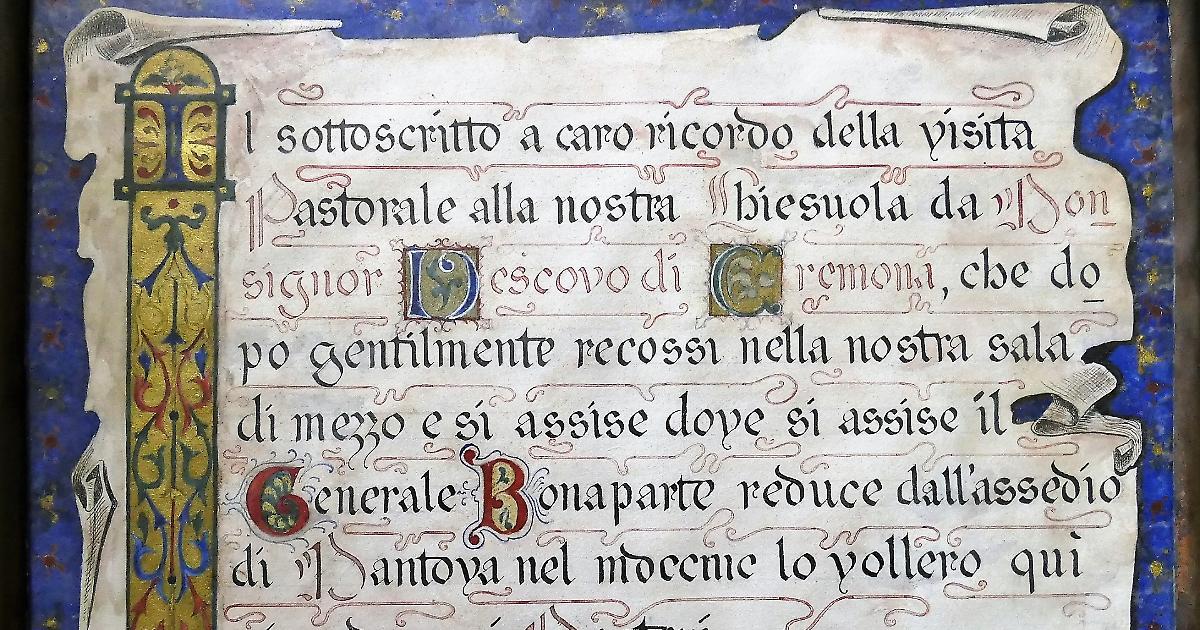 Il sottoscritto a caro ricordo della visita
Pastorale alla nostra Chiesuola da Mon
signor Vescovo di Cremona, che do
po gentilmente recossi nella nostra sala
di mezzo e si assise dove si assise il
Generale Bonaparte reduce dall'assedio
di Mantova nel lo vollero qui